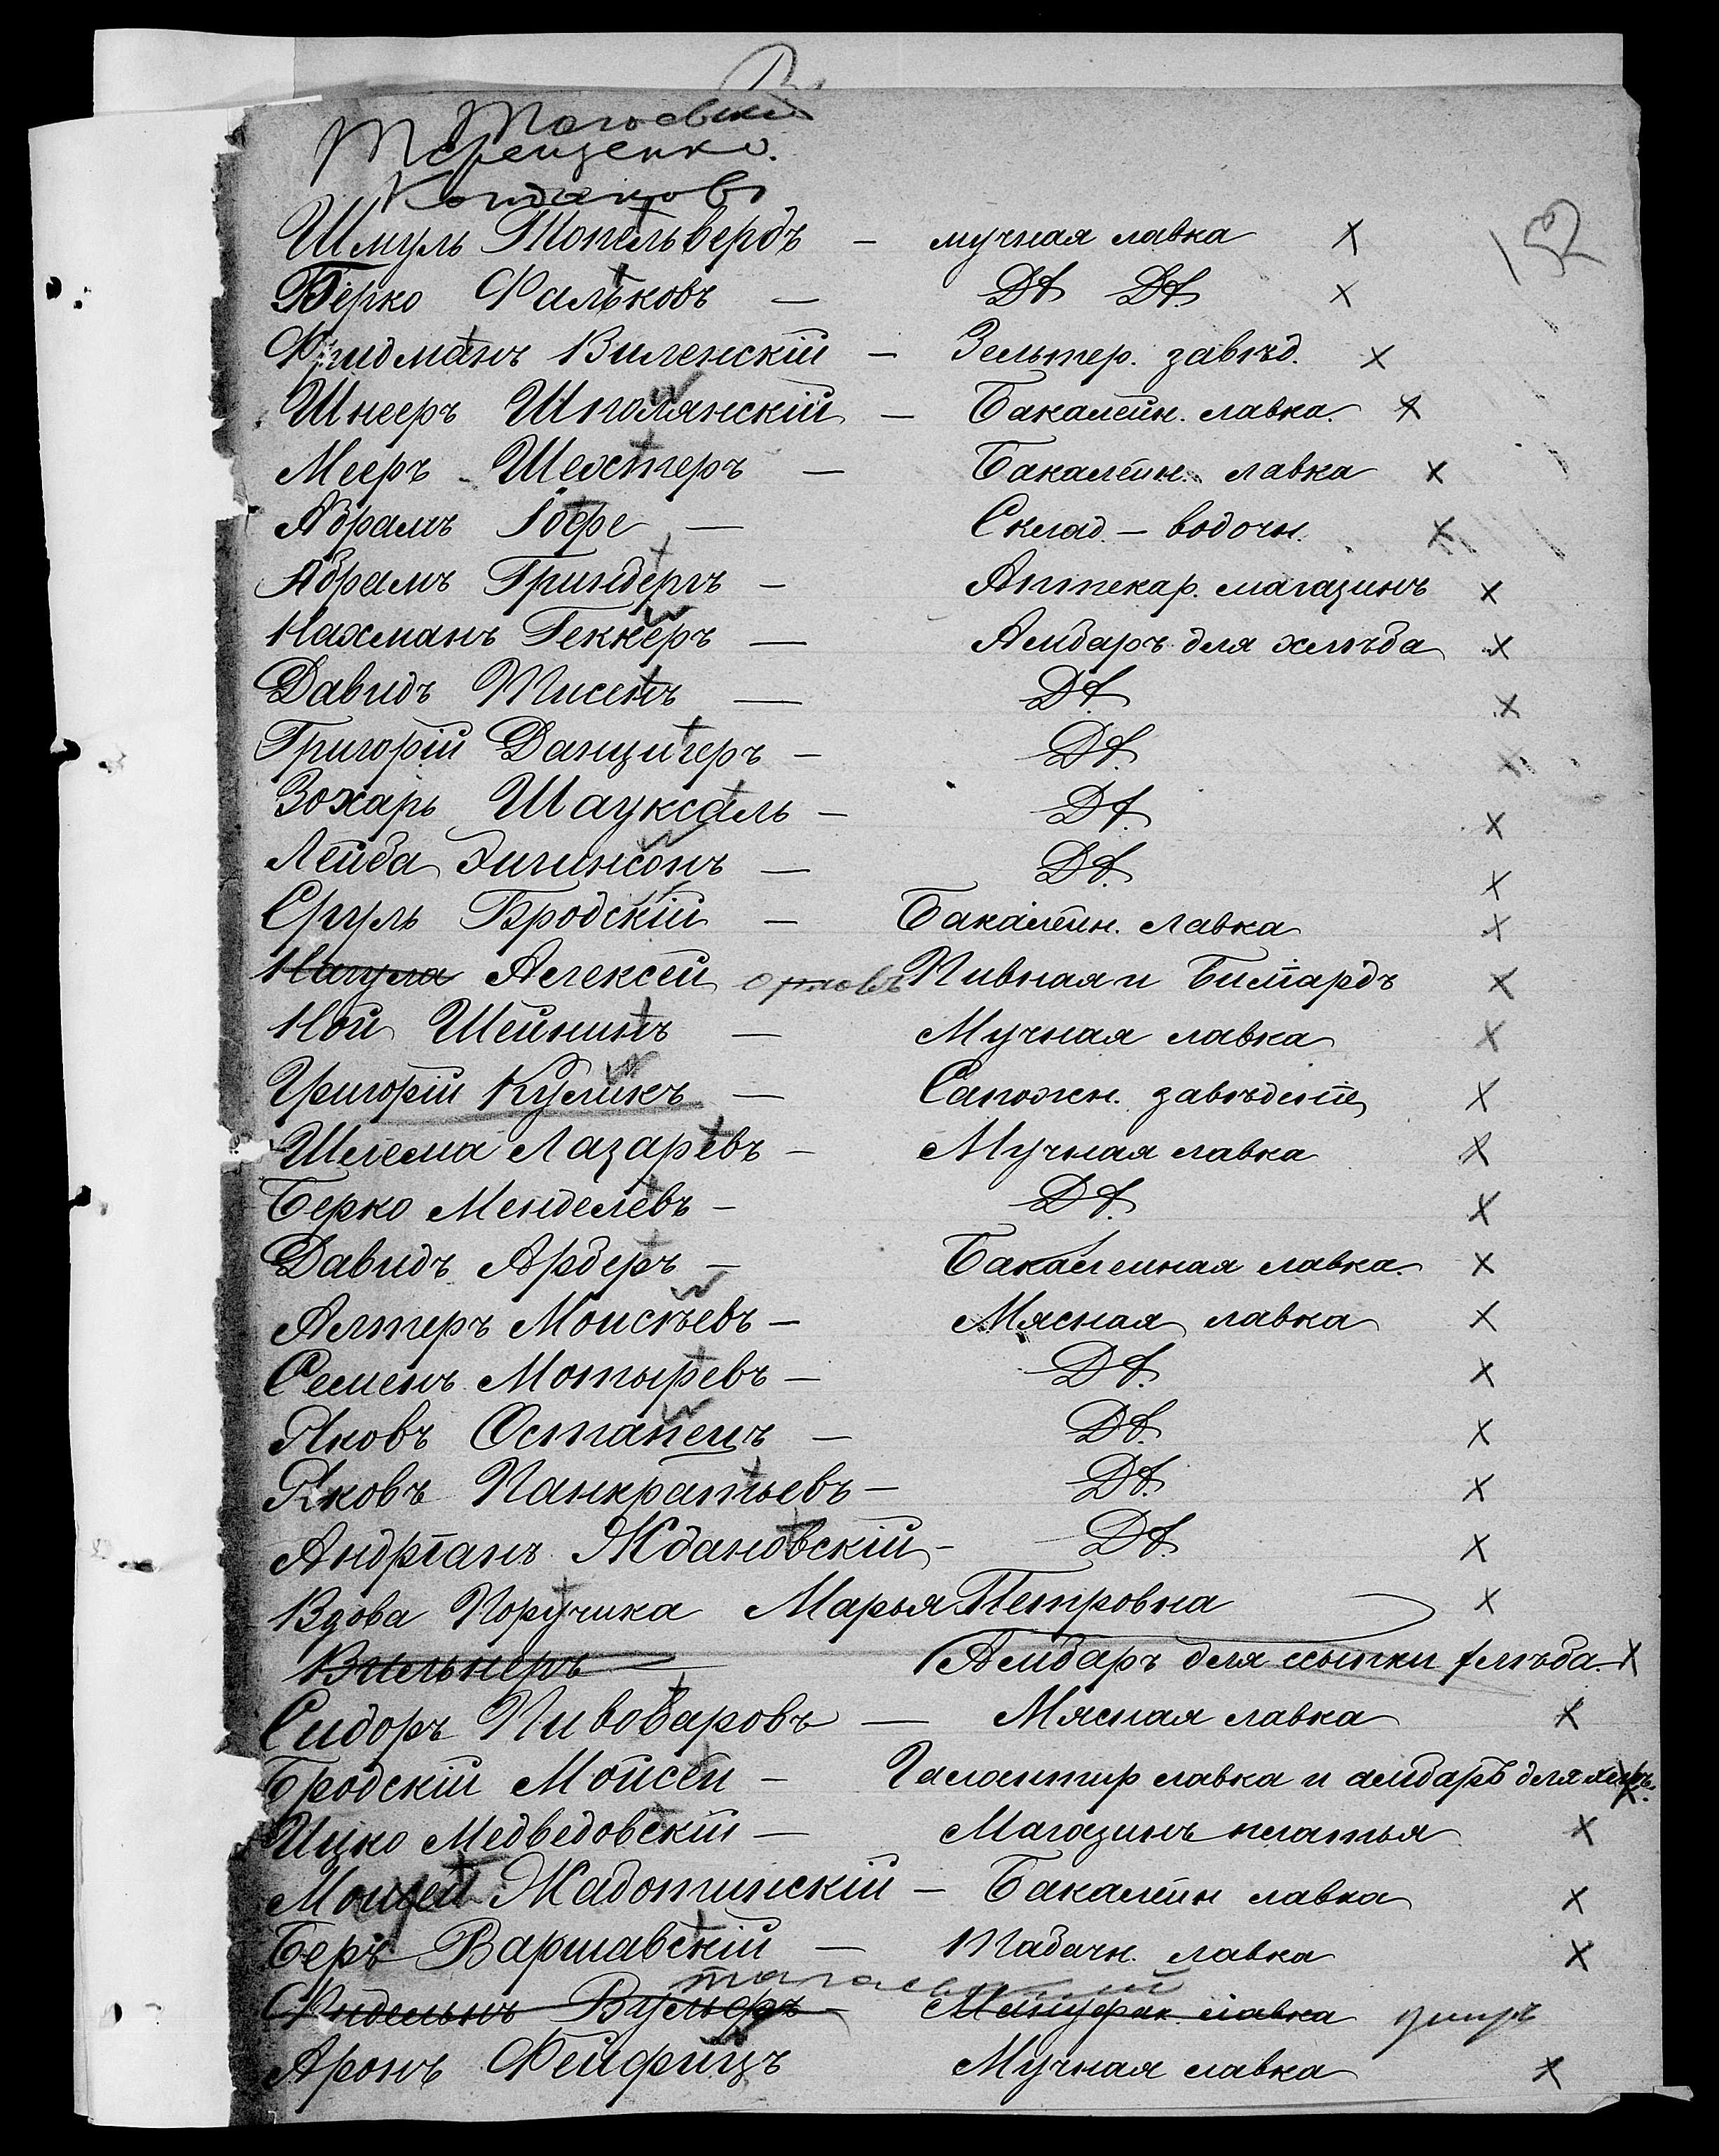 Терещенко.
152
Шмуль Топельбергъ — мучная лавка х
Берко Фальковъ — Dt Dt х
Фридманъ Виленскій — Зельтер. завѣд. х
Шнееръ Шполянскій — Бакалейн. лавка. х
Мееръ Шехтеръ — Бакалейн. лавка х
Абрамъ — Склад. — водочн. х
Абрамъ Гринбергъ — Аптекар. магазинъ х
Нахманъ Геккеръ — Амбаръ для хлѣба х
Давидъ — Dt. х
Григорій Данцигеръ — Dt. х
Зохарь — Dt. х
Лейба — Dt. х
Сруль Бродскій — Бакалейн. лавка х
Алексей Пивная и Билліардъ х
Ной Шейнинъ — Мучная лавка х
Григорій Куликъ — Сапожн. завѣденіе х
Шлема Лазаревъ — Мучная лавка х
Берко Менделевъ — Dt. х
Давидъ Арберъ — Бакалейная лавка. х
Алтеръ Моисѣевъ — Мясная лавка х
Семенъ Мотыревъ — Dt. х
Яковъ Остапецъ — Dt. х
Яковъ Панкратьевъ — Dt. х
Андріанъ Ждановскій — Dt. х
Вдова Поручика Марья Петровна х
Вильнеръ — Амбаръ для ссыпки хлѣба. х
Сидоръ Пивоваровъ — Мясная лавка х
Бродскій Мойсей — Галантир лавка и амбаръ для хлѣб.
Ицко Медведовскій — Магазинъ платья х
Моисей Жаботинскій — Бакалейн лавка х
Беръ Варшавскій — Табачн. лавка х
Вульфъ — Мануфак. лавка умеръ
Аронъ Фейфицъ Мучная лавка х